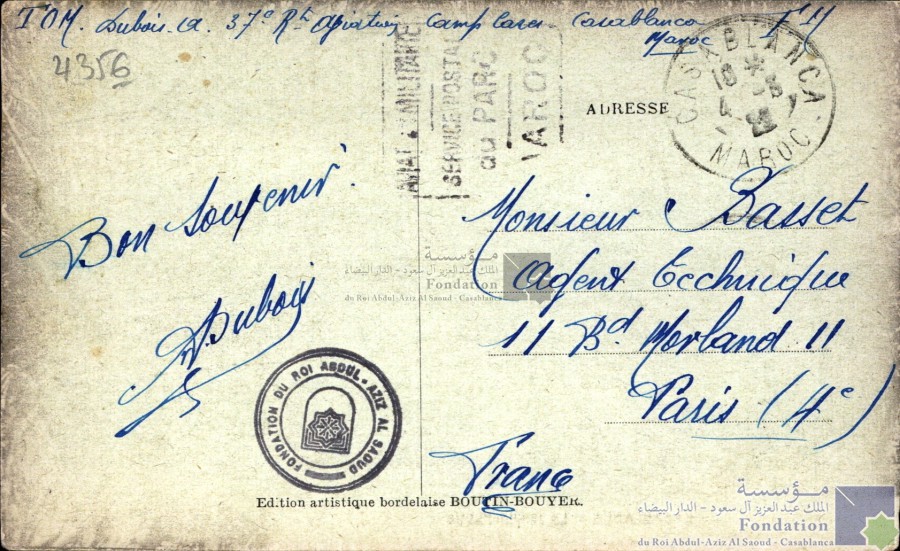 Dubois A. 37e Rt Aviation Camp Cazes Casablanca F M
Maroc
4356
MILITAIRE
SERVICE POSTA
du PARC
MAROC
CASABLANCA
MAROC
ADRESSE
Bon souvenir
ADubois
Monsieur Basset
Agent Technique
11 Bd Morland 11
Paris (4e)
France
مؤسسة
الملك عبد العزيز آل سعود - الدار البيضاء
Fondation
du Roi Abdul-Aziz Al Saoud - Casablanca
FONDATION DU ROI ABDUL-AZIZ AL SAOUD
Edition artistique bordelaise BOUTIN-BOUYER.
مؤسسة
الملك عبد العزيز آل سعود - الدار البيضاء
Fondation
du Roi Abdul-Aziz Al Saoud - Casablanca